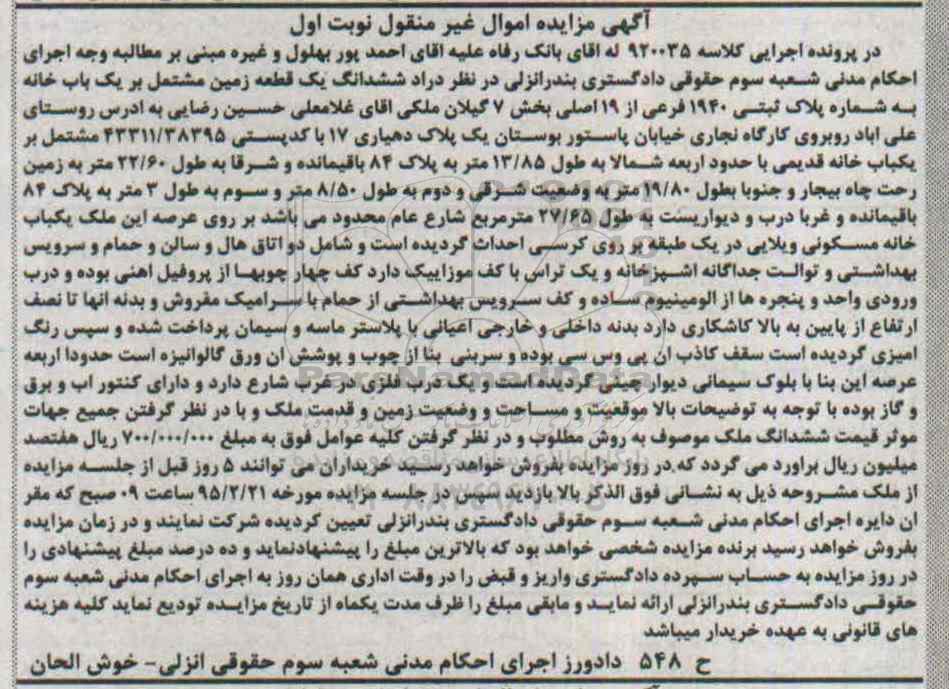 آگهی مزایده اموال غیر منقول نوبت اول
در پرونده اجرایی کلاسه ۹۲۰۰۳۵ له اقای بانک رفاه علیه اقای احمد پور بهلول و غیره مبنی بر مطالبه وجه اجرای
احکام مدنی شعبه سوم حقوقی دادگستری بندرانزلی در نظر دراد ششدانگ یک قطعه زمین مشتمل بر یک باب خانه
به شماره پلاک ثبتی ۱۹۴۰ فرعی از ۱۹ اصلی بخش ۷ گیلان ملکی اقای غلامعلی حسین رضایی به ادرس روستای
علی اباد روبروی کارگاه نجاری خیابان پاستور بوستان یک پلاک دهیاری ۱۷ با کدپستی ۴۳۳۱۱/۳۸۳۹۵ مشتمل بر
یکباب خانه قدیمی با حدود اربعه شمالا به طول ۱۳/۸۵ متر به پلاک ۸۴ باقیمانده و شرقا به طول ۲۲/۶۰ متر به زمین
رحت چاه بیجار و جنوبا بطول ۱۹/۸۰ متر به وضعیت شرقی و دوم به طول ۸/۵۰ متر و سوم به طول ۳ متر به پلاک ۸۴
باقیمانده و غربا درب و دیواریست به طول ۲۷/۶۵ مترمربع شارع عام محدود می باشد بر روی عرصه این ملک یکباب
خانه مسکونی ویلایی در یک طبقه بر روی کرسی احداث گردیده است و شامل دو اتاق هال و سالن و حمام و سرویس
بهداشتی و توالت جداگانه اشپزخانه و یک تراس با کف موزاییک دارد کف چهار چوبها از پروفیل اهنی بوده و درب
ورودی واحد و پنجره ها از الومینیوم ساده و کف سرویس بهداشتی از حمام با سرامیک مفروش و بدنه انها تا نصف
ارتفاع از پایین به بالا کاشکاری دارد بدنه داخلی و خارجی اعیانی با پلاستر ماسه و سیمان پرداخت شده و سپس رنگ
امیزی گردیده است سقف کاذب ان پی وس سی بوده و سربنی بنا از چوب و پوشش ان ورق گالوانیزه است حدودا اربعه
عرصه این بنا با بلوک سیمانی دیوار چینی گردیده است و یک درب فلزی در غرب شارع دارد و دارای کنتور اب و برق
و گاز بوده با توجه به توضیحات بالا موقعیت و مساحت و وضعیت زمین و قدمت ملک و با در نظر گرفتن جمیع جهات
موثر قیمت ششدانگ ملک موصوف به روش مطلوب و در نظر گرفتن کلیه عوامل فوق به مبلغ ۷۰۰/۰۰۰/۰۰۰ ریال هفتصد
میلیون ریال براورد می گردد که در روز مزایده بفروش خواهد رسید خریداران می توانند ۵ روز قبل از جلسه مزایده
از ملک مشروحه ذیل به نشانی فوق الذکر بالا بازدید سپس در جلسه مزایده مورخه ۹۵/۲/۲۱ ساعت ۰۹ صبح که مقر
ان دایره اجرای احکام مدنی شعبه سوم حقوقی دادگستری بندرانزلی تعیین گردیده شرکت نمایند و در زمان مزایده
بفروش خواهد رسید برنده مزایده شخصی خواهد بود که بالاترین مبلغ را پیشنهادنماید و ده درصد مبلغ پیشنهادی را
در روز مزایده به حساب سپرده دادگستری واریز و قبض را در وقت اداری همان روز به اجرای احکام مدنی شعبه سوم
حقوقی دادگستری بندرانزلی ارائه نماید و مابقی مبلغ را ظرف مدت یکماه از تاریخ مزایده تودیع نماید کلیه هزینه
های قانونی به عهده خریدار میباشد
ح ۵۴۸ دادورز اجرای احکام مدنی شعبه سوم حقوقی انزلی- خوش الحان
ParsNamadData